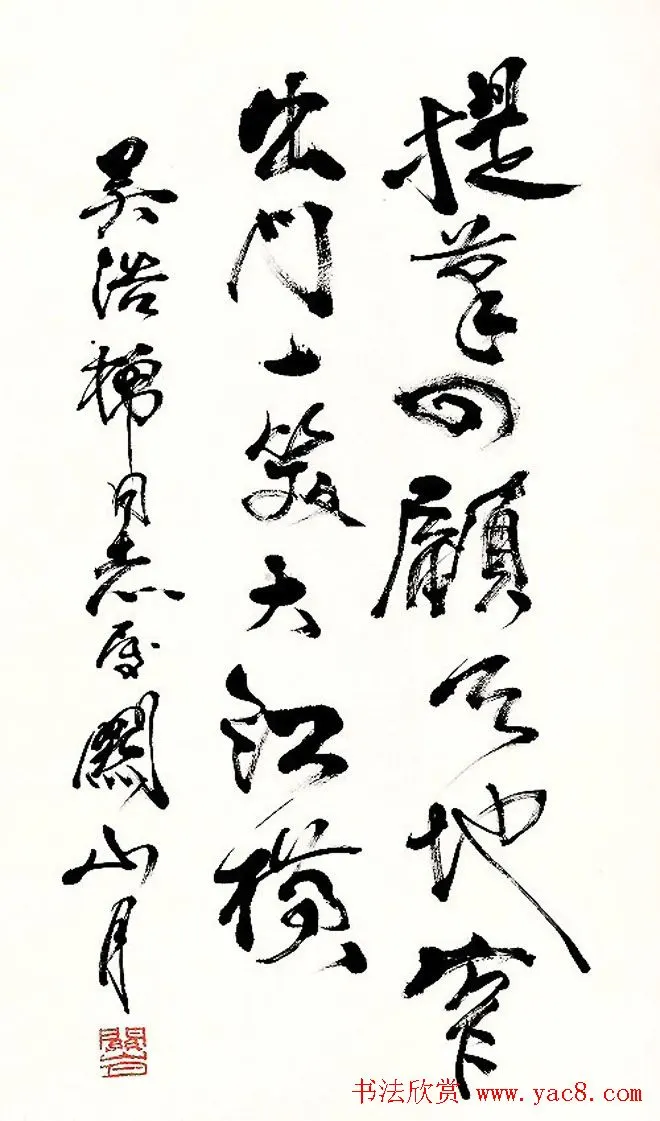 提筆四顧天地窄
出門一笑大江橫
吴浩同志属 關山月
书法欣赏 www.yac8.com